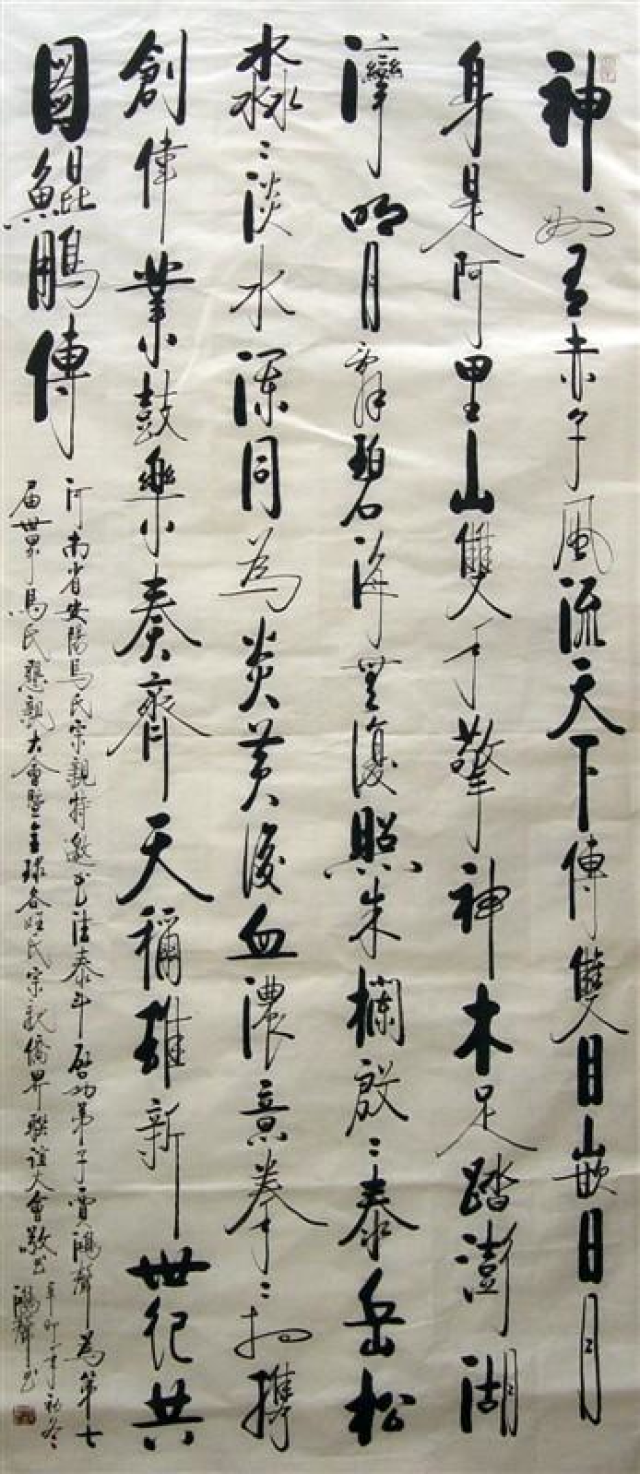 神州有赤子風流天下傳雙目嵌日月
身是阿里山雙手擎神木足踏澎湖
灣明月霽碧海無復照朱欄殷々泰岳松
淼々淡水深同為炎黃後血濃意拳々相攜
創偉業鼓樂奏齊天稱雄新世紀共
圖鯤鵬傳
河南省安陽馬氏宗親特邀書法泰斗啟功弟子賈鴻聲為第七
屆世界馬氏懇親大會暨全球各姓氏宗親僑界聯誼大會敬書
辛卯年初冬
鴻聲書